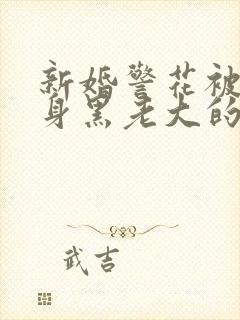 新婚警花被
身黑老大的
武吉